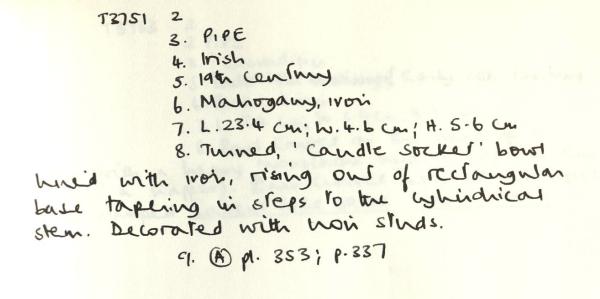 T3751 2
3. PIPE
4. Irish
5. 19th Century
6. Mahogany, iron
7. L. 23.4 cm; W. 4.6 cm; H. 5.6 cm
8. Turned, 'candle socket' bowl
lined with iron, rising out of rectangular
base tapering in steps to the cylindrical
stem. Decorated with iron studs.
9. Ⓐ pl. 353; p. 337